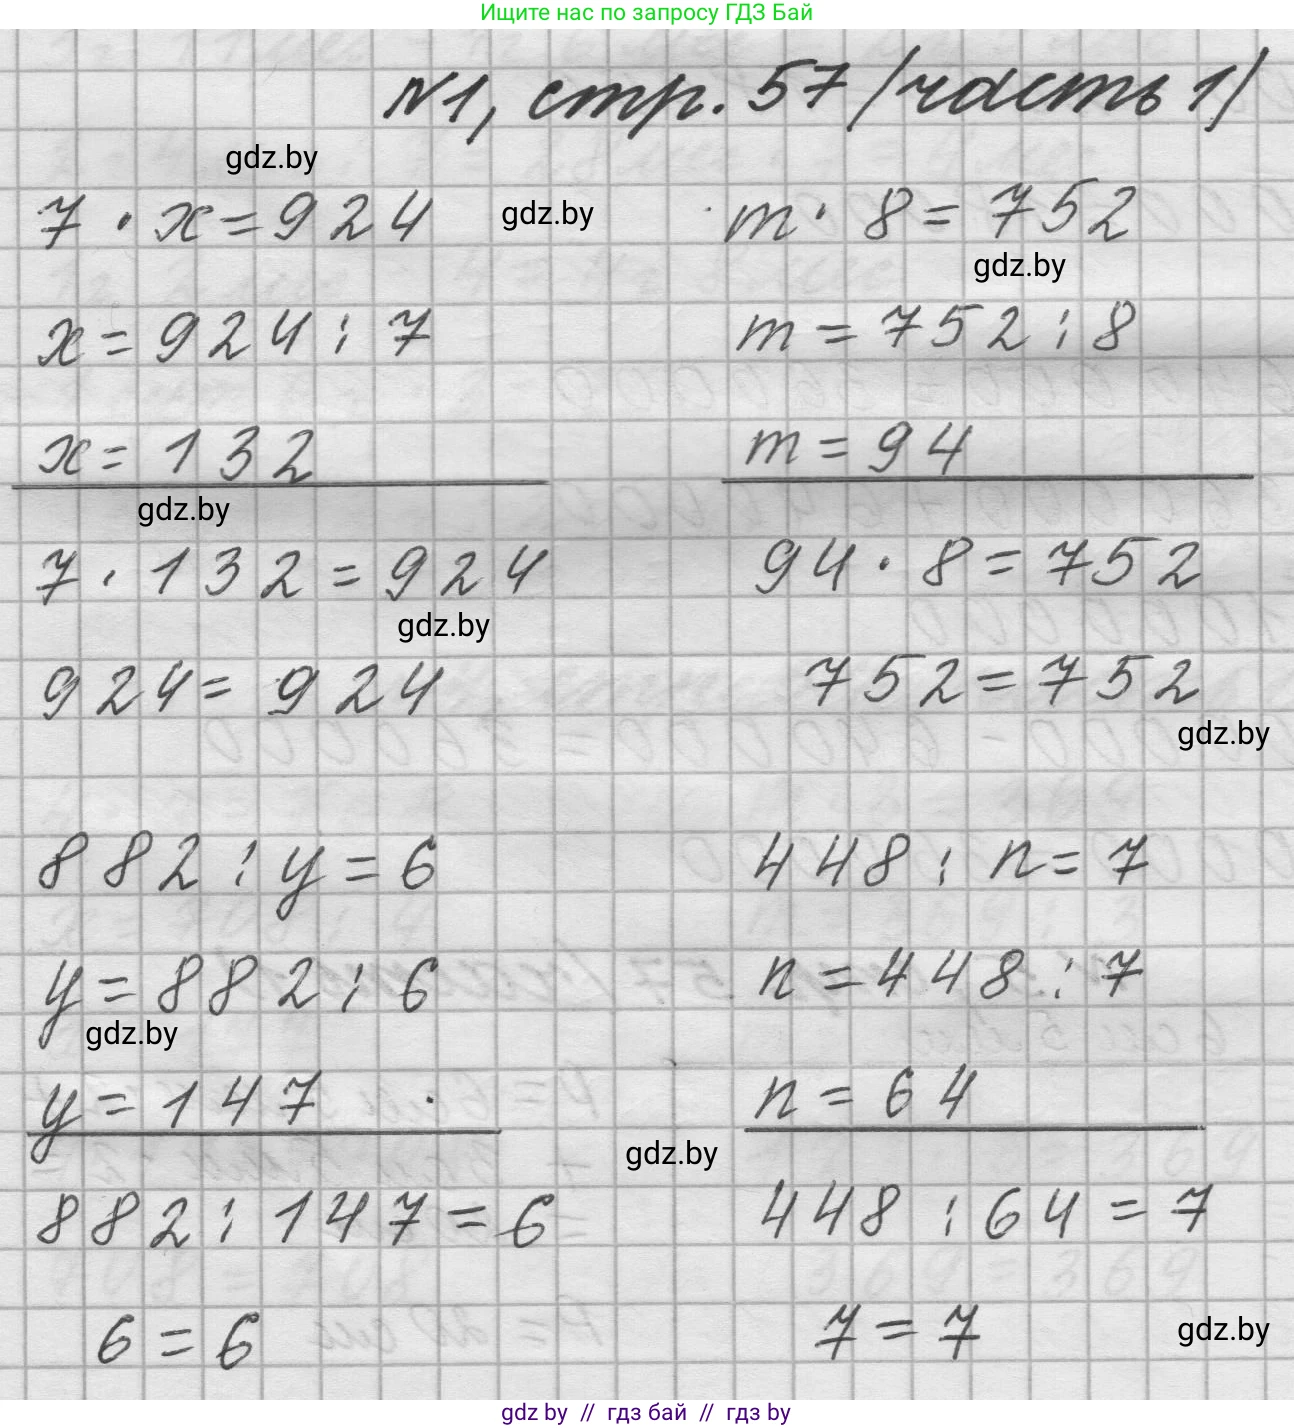 Ищите нас по запросу ГДЗ Бай
№1, стр. 57 /часть 1/
gdz.by
7 · x = 924
gdz.by
m · 8 = 752
gdz.by
x = 924 : 7
m = 752 : 8
x = 132
m = 94
gdz.by
7 · 132 = 924
94 · 8 = 752
gdz.by
924 = 924
752 = 752
gdz.by
882 : y = 6
448 : n = 7
y = 882 : 6
n = 448 : 7
gdz.by
y = 147
n = 64
gdz.by
882 : 147 = 6
448 : 64 = 7
6 = 6
7 = 7
gdz.by
gdz by // гдз бай // гдз by